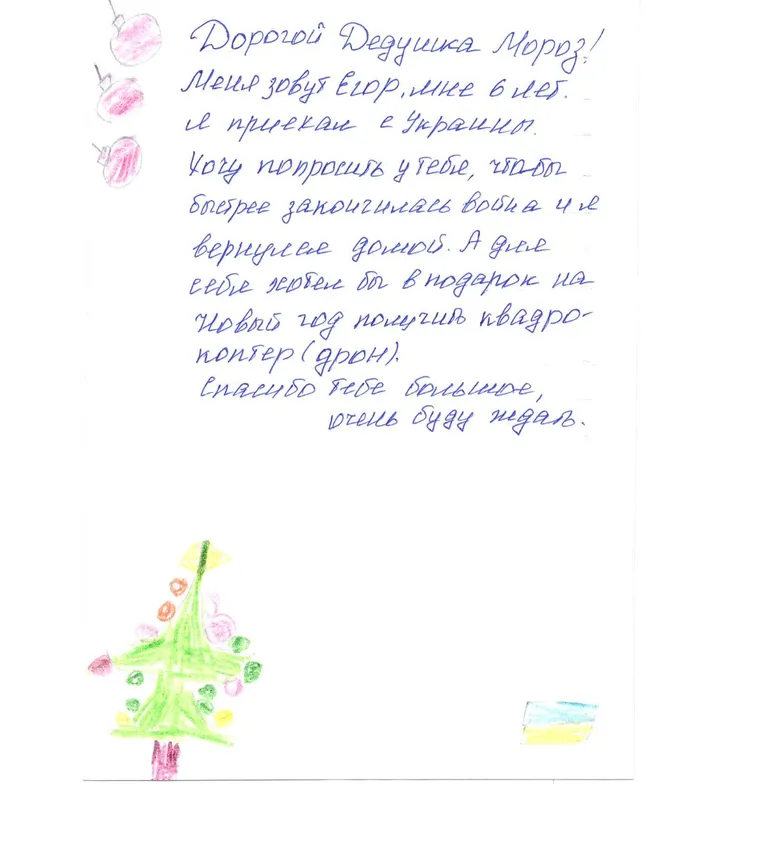 Дорогой Дедушка Мороз!
Меня зовут Егор, мне 6 лет.
Я приехал с Украины.
Хочу попросить у тебя, чтобы
быстрее закончилась война и я
вернулся домой. А для
себя хотел бы в подарок на
Новый год получить квадро-
коптер (дрон).
Спасибо тебе большое,
очень буду ждать.